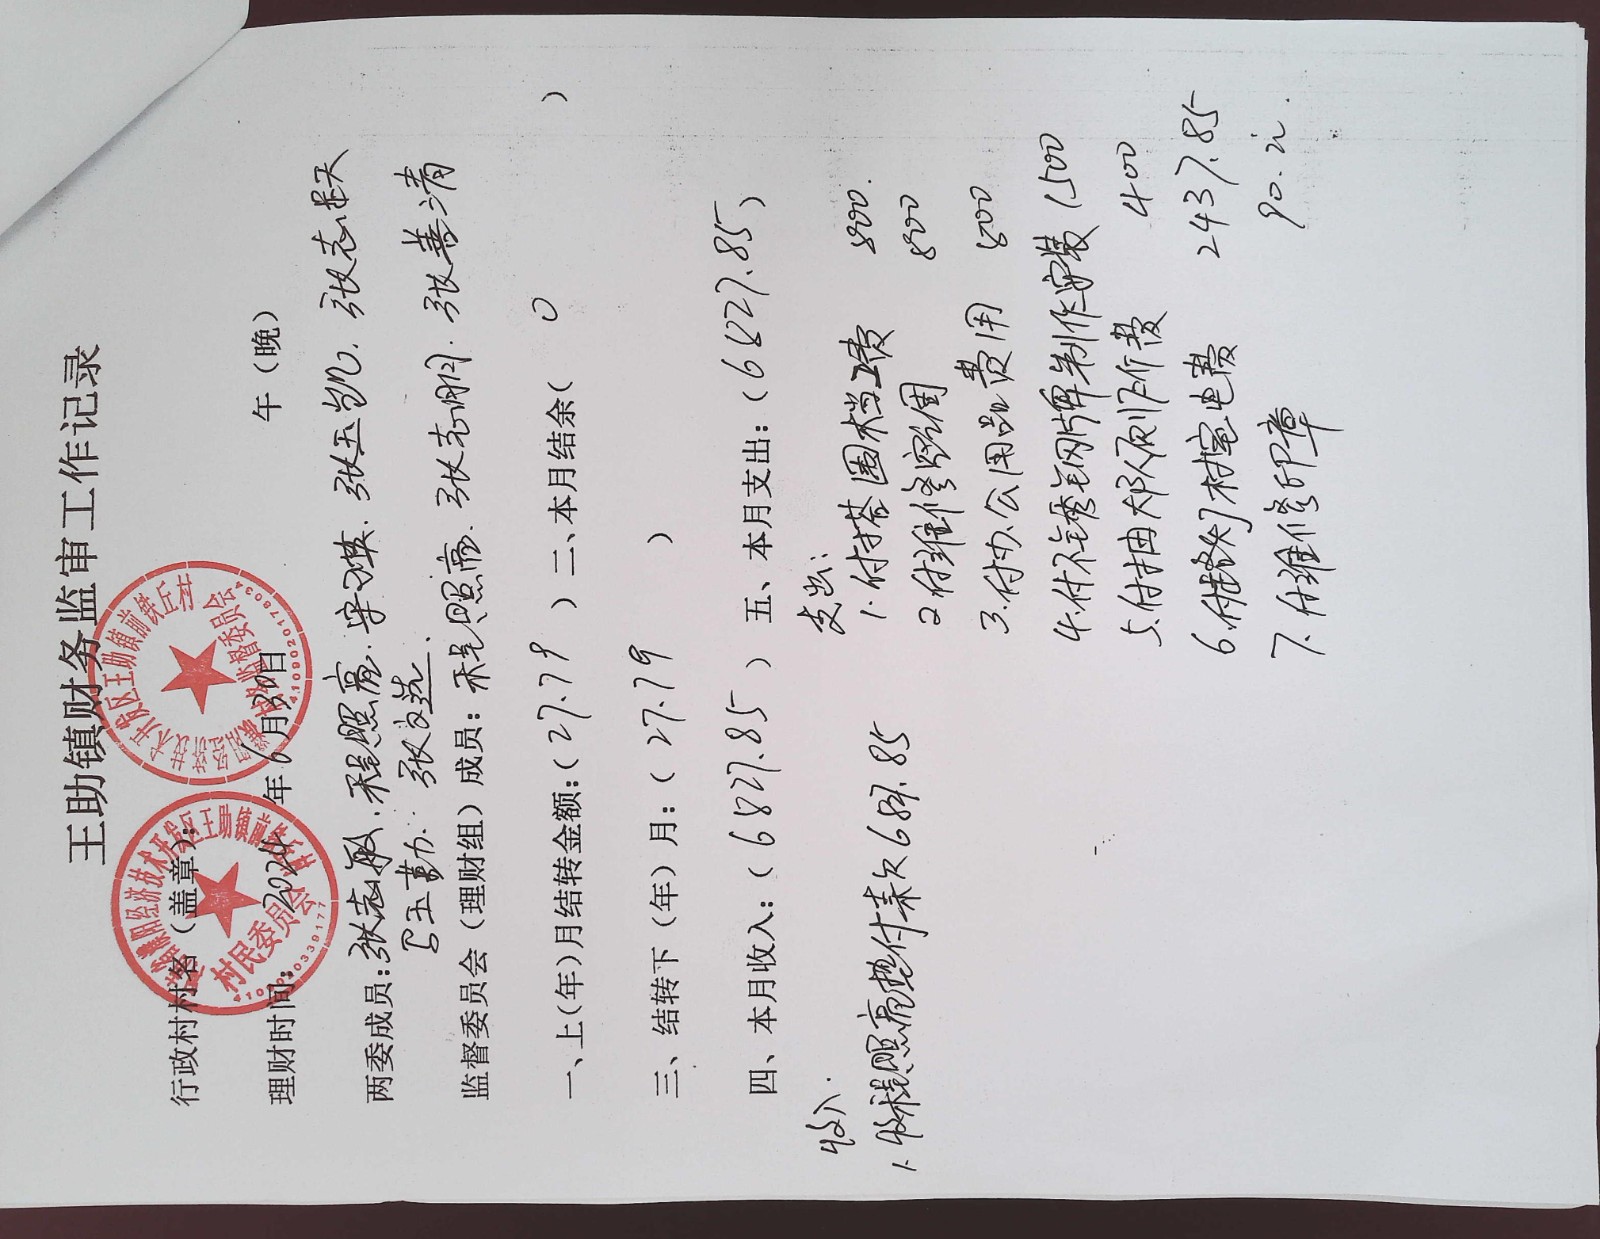 王助镇财务监审工作记录
行政村村名（盖章）：
理财时间： 2024 年 6 月 30 日 午（晚）
两委成员：张志敏．程照高．张玉凯．张志
张文选．
监督委员会（理财组）成员：程照高．张志朋．张善清
一、上（年）月结转金额：（27.79 ）二、本月结余（ 0 ）
三、结转下（年）月：（27.79 ）
四、本月收入：（6827.85）五、本月支出：（6827.85）
收入．
1．收程照高垫付款 6827.85
支出：
1．付搭围档工费 800．
2 付维修 800
3．付办公用品费用 800
4．付不锈钢牌制作安装 1500
5．付 费 400
6．付 村室电费 2437.85
7．付维修印章 90．
濮阳经济技术开发区王助镇前铁丘村
村民委员会
4109020339177
技术开发区王助镇前铁丘村
村务监督委员会
4109020178034